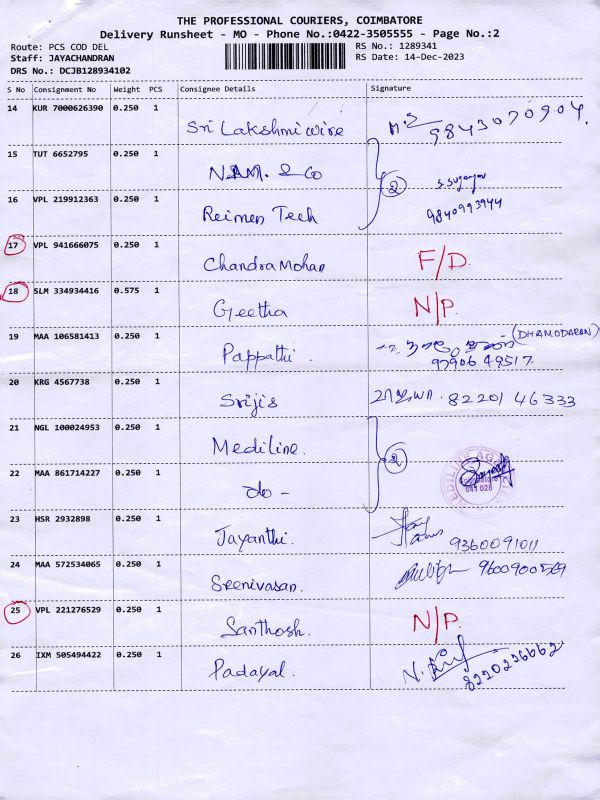 THE PROFESSIONAL COURIERS, COIMBATORE
Delivery Runsheet - MO - Phone No.:0422-3505555 - Page No.:2
Route: PCS COD DEL RS No.: 1289341
Staff: JAYACHANDRAN RS Date: 14-Dec-2023
DRS No.: DCJB128934102
S No Consignment No Weight PCS Consignee Details Signature
14 KUR 7000626390 0.250 1 Sri Lakshmi wire 9843070904
15 TUT 6652795 0.250 1 N.A.M. & Co
16 VPL 219912363 0.250 1 Reimen Tech 2 S.Sugangan 9840993944
17 VPL 941666075 0.250 1 Chandra Mohan F/D.
18 SLM 334934416 0.575 1 Geetha N/P.
19 MAA 106581413 0.250 1 Pappathi. (DHAMODARAN) 97906 49517
20 KRG 4567738 0.250 1 Srijis 82201 46333
21 NGL 100024953 0.250 1 Mediline. 2
22 MAA 861714227 0.250 1 do - MEDILINE AGENCIES 641 028
23 HSR 2932898 0.250 1 Jayanthi. 9360091011
24 MAA 572534065 0.250 1 Sreenivasan. 9600900569
25 VPL 221276529 0.250 1 Santhosh. N/P.
26 IXM 505494422 0.250 1 Padayal. 8220226662